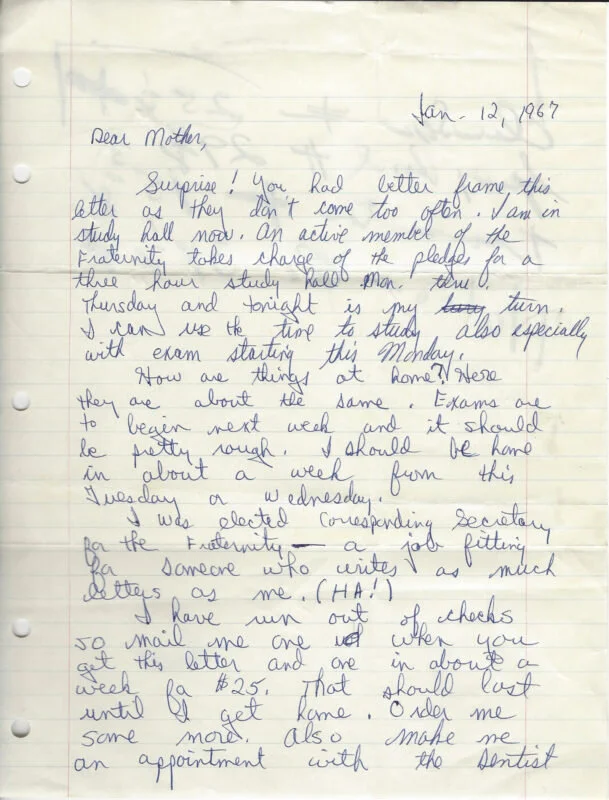 Jan - 12, 1967
Dear Mother,
Surprise! You had better frame this
letter as they don't come too often. I am in
study hall now. An active member of the
Fraternity takes charge of the pledges for a
three hour study hall Mon. thru.
Thursday and tonight is my turn.
I can use the time to study also especially
with exam starting this Monday.
How are things at home? Here
they are about the same. Exams are
to begin next week and it should
be pretty rough. I should be home
in about a week from this
Tuesday or Wednesday.
I was elected Corresponding Secretary
for the Fraternity — a job fitting
for someone who writes as much
letters as me. (HA!)
I have run out of checks
so mail me one when you
get this letter and one in about a
week for $25. That should last
until I get home. Order me
some more. Also make me
an appointment with the Dentist